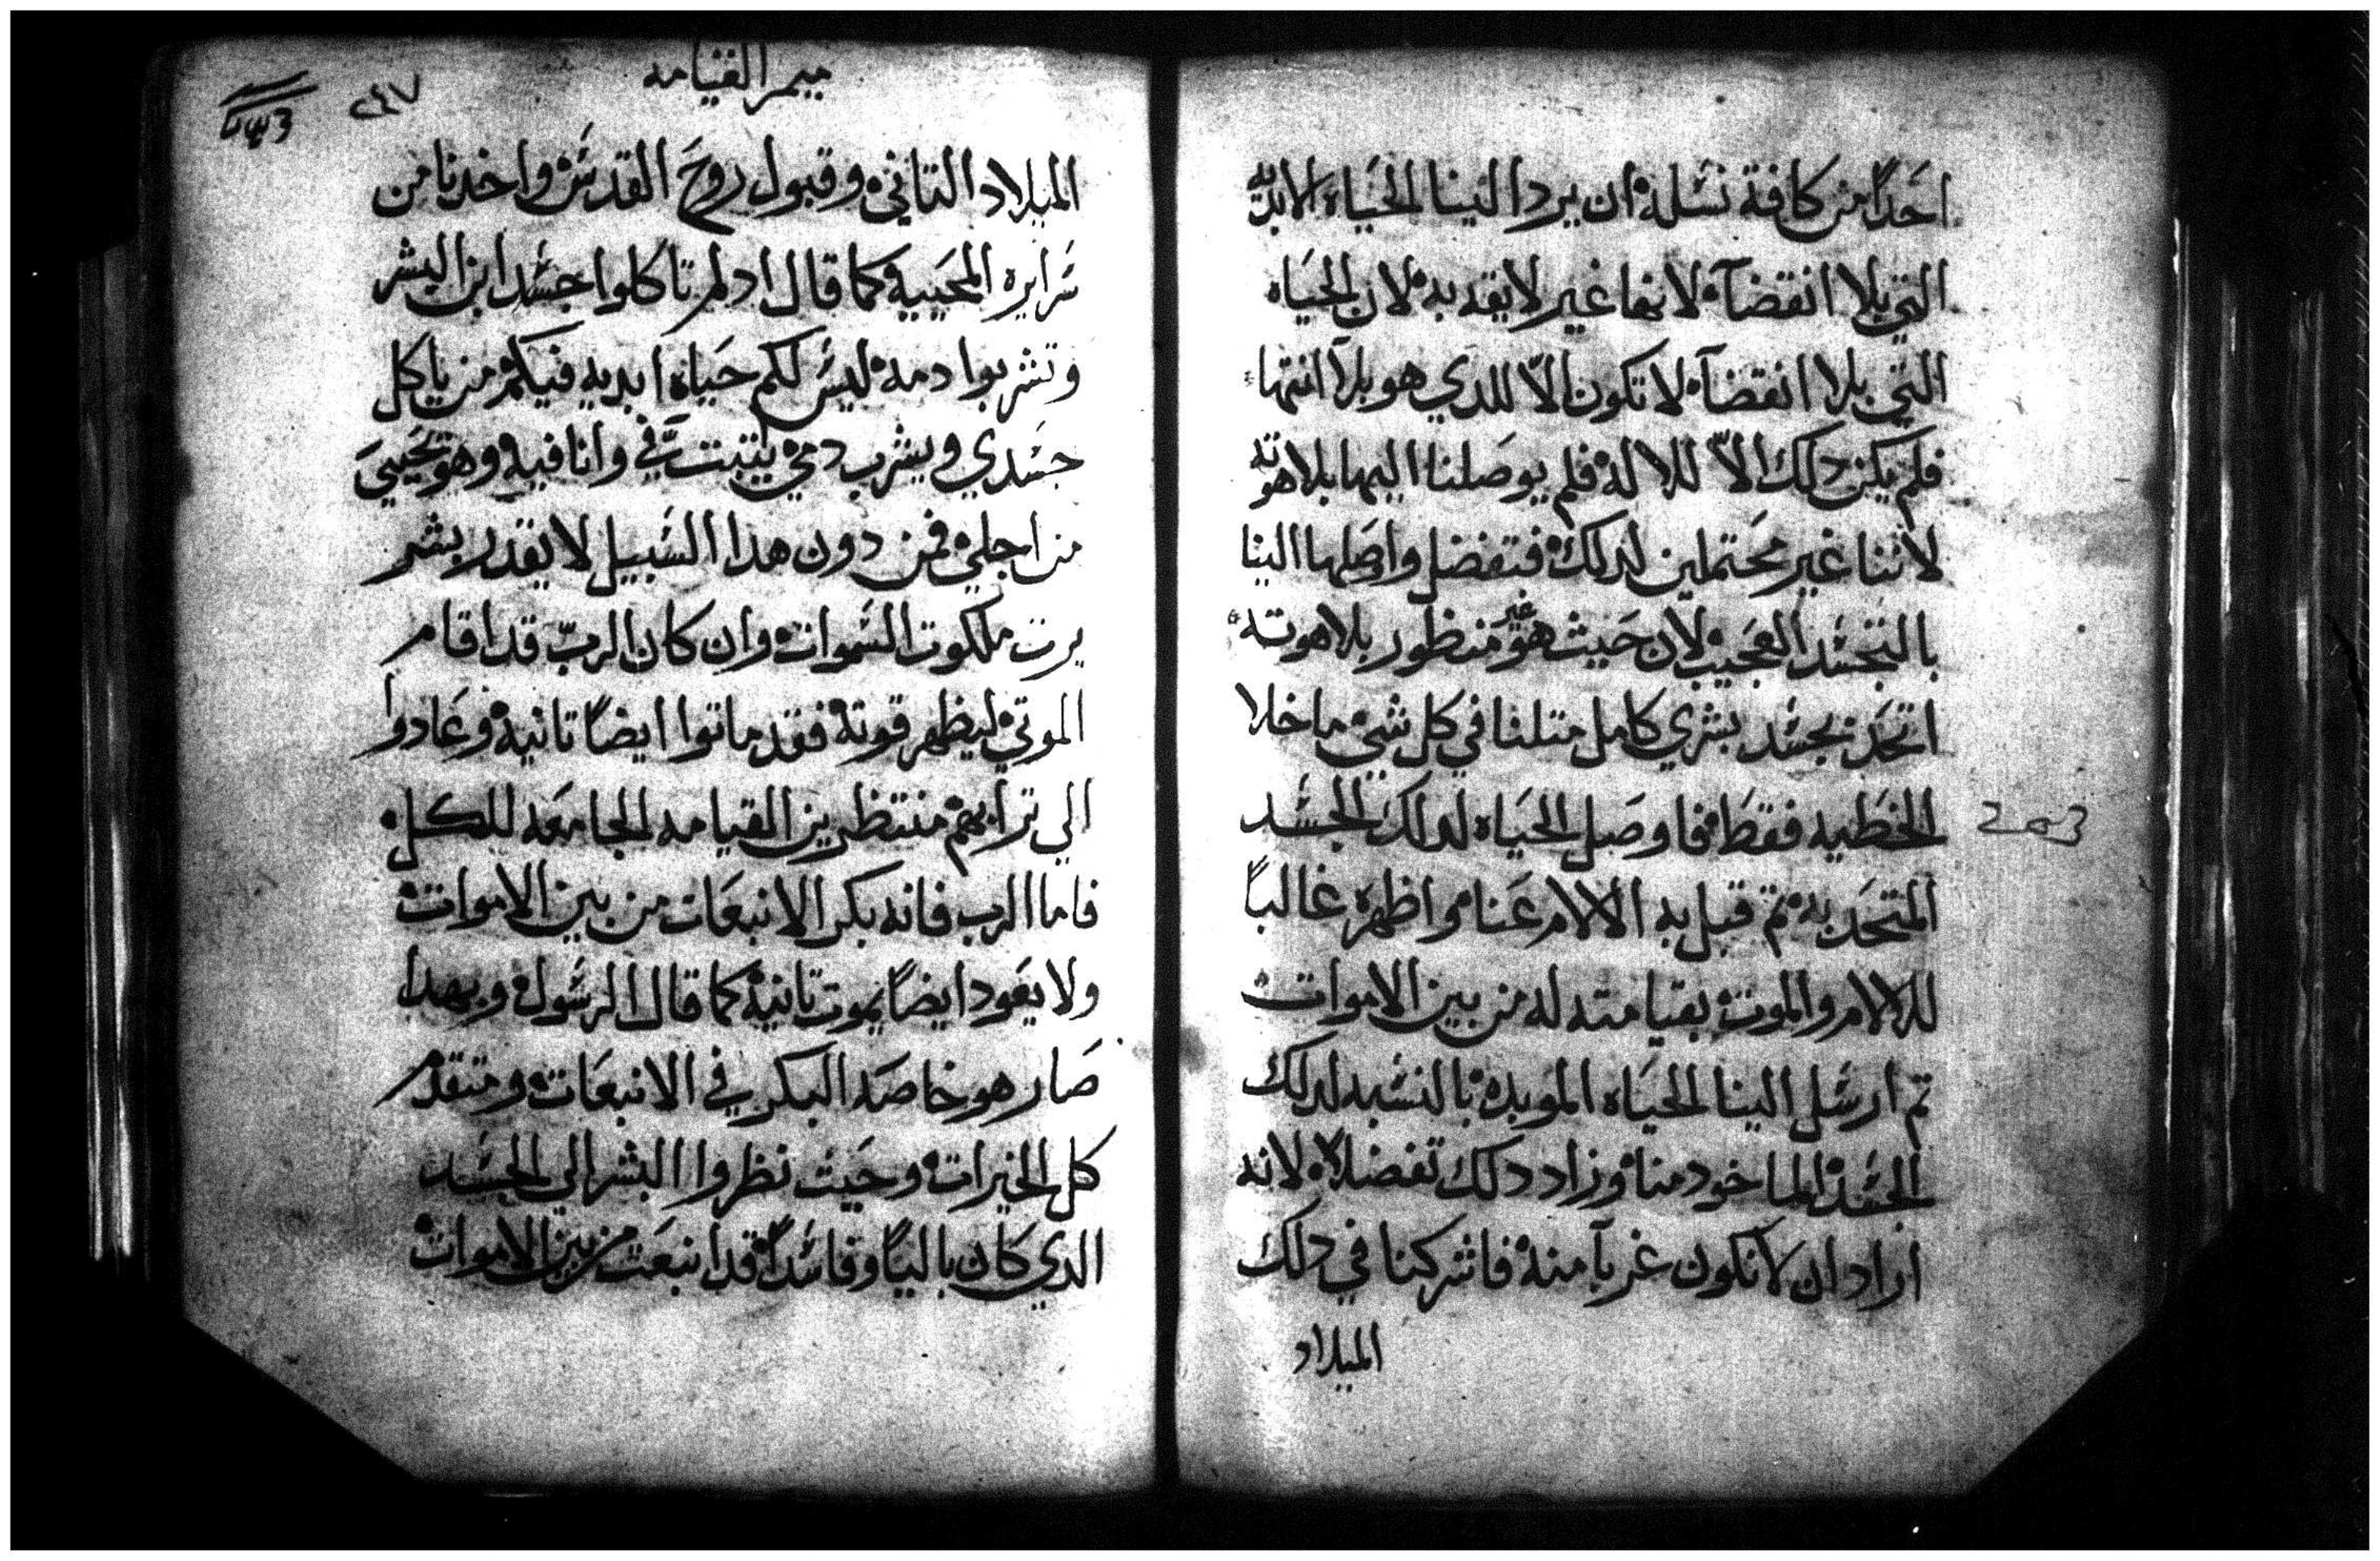 احدًا من كافة نسله ان يرد الينا الحياه الابديه
التي بلا انقضآ لانها غير لايقه به لان الحياه
التي بلا انقضآ لا تكون الّا للدي هو بلا انتها
فلم يكن دلك الاّ للاله فلم يوصلنا اليها بلاهوته
لاننا غير محتملين لدلك فتفضل واصلها الينا
بالتجسد العجيب لان حيث هو غير منظور بلاهوته
اتحد بجسد بشري كامل متلنا في كل شي ما خلا
الخطيه فقط فاوصل الحياه لدلك الجسد
المتحد به تم قبل به الالام عنا واظهره غالباً
للالام والموت بقيامته له من بين الاموات
تم ارسل الينا الحياه الموبده بالنسبه لدلك
الجسد الماخود منا وزاد دلك تفضلا لانه
اراد ان لا نكون غربآ منه فاشركنا في دلك
الميلاد
ميمر القيامه
٢٤٧
الميلاد التاني وقبول روح القدس واخدنا من
سرايره المحييه كما قال ادلم تاكلوا جسد ابن البشر
وتشربوا دمه ليس لكم حياه ابديه فيكم من ياكل
جسدي ويشرب دمي يتبت فيّ وانا فيه وهو يحيى
من اجلي فمن دون هدا السبيل لا يقدر بشر
يرت ملكوت السموات وان كان الربّ قد اقام
الموتي ليظهر قوته فقد ماتوا ايضاً تانيه وعادوا
الي ترابهم منتظرين القيامه الجامعه للكل
فاما الرب فانه بكر الانبعات من بين الاموات
ولا يعود ايضاً يموت تانيه كما قال الرسول وبهدا
صار هو خاصه البكر في الانبعات ومتقدم
كل الخيرات وحيت نظروا البشر الي الجسد
الدي كان باليًا وفاسداً قد انبعت من بين الاموات